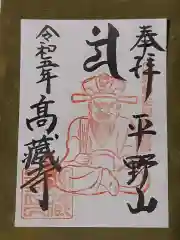 奉拝
平野山
令和五年
高藏寺